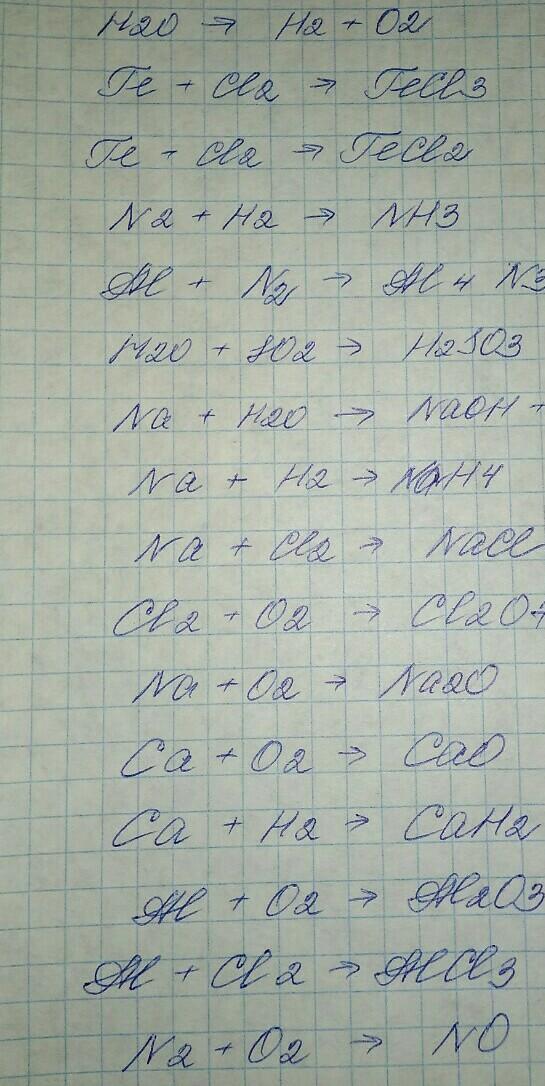 H2O → H2 + O2
Fe + Cl2 → FeCl3
Fe + Cl2 → FeCl2
N2 + H2 → NH3
Al + N2 → Al4N3
H2O + SO2 → H2SO3
Na + H2O → NaOH +
Na + H2 → NaH4
Na + Cl2 → NaCl
Cl2 + O2 → Cl2O7
Na + O2 → Na2O
Ca + O2 → CaO
Ca + H2 → CaH2
Al + O2 → Al2O3
Al + Cl2 → AlCl3
N2 + O2 → NO